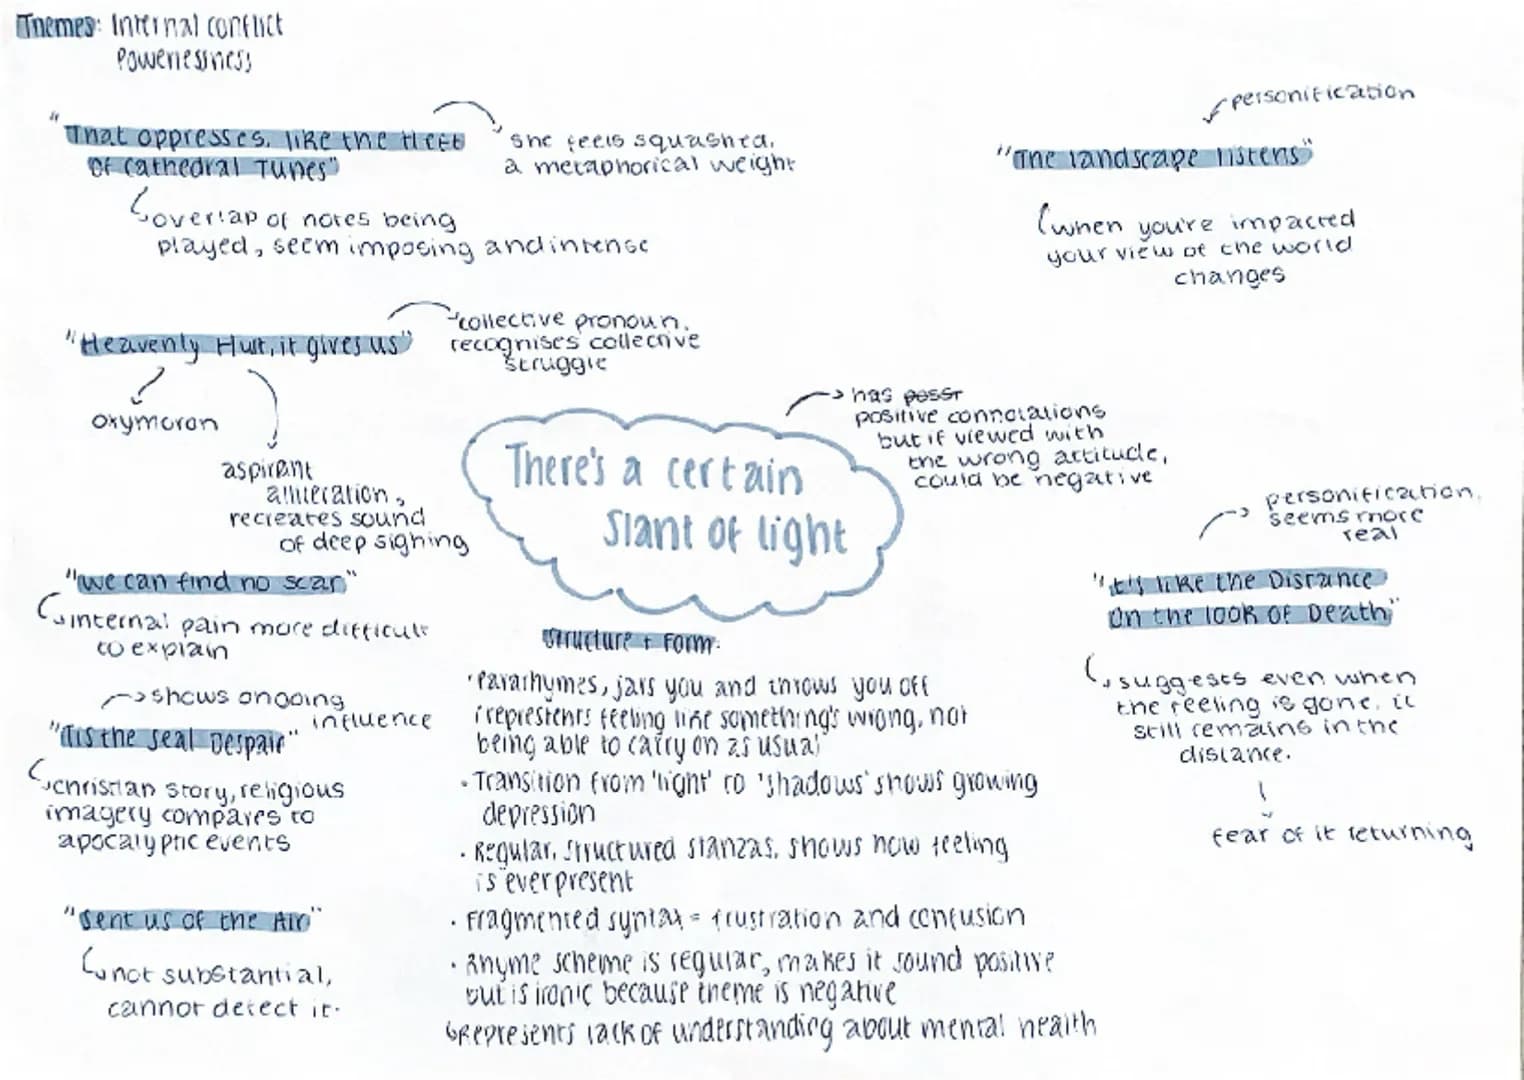 Themes: Internal conflict
Powerlessness
"That oppresses, like the Heft
Of Cathedral Tunes"
she feels squashed,
a metaphorical weight
overlap of notes being
played, seem imposing and intense
"Heavenly Hurt, it gives us"
collective pronoun,
recognises collective
struggle
oxymoron
aspirant
alliteration,
recreates sound
of deep sighing
"we can find no scar"
internal pain more difficult
to explain
shows ongoing
influence
"'Tis the Seal Despair"
christian story, religious
imagery compares to
apocalyptic events
"Sent us of the Air"
not substantial,
cannot detect it.
There's a certain
slant of light
has
positive connotations
but if viewed with
the wrong attitude,
could be negative
Structure + Form:
· Pararhymes, jars you and throws you off
(represtents feeling like something's wrong, not
being able to carry on as usual
· Transition from 'light' to 'shadows' shows growing
depression
· Regular, structured stanzas, shows how feeling
is ever present
· Fragmented syntax = frustration and confusion
· Rhyme scheme is regular, makes it sound positive
but is ironic because theme is negative
Represents lack of understanding about mental health
personification
"The landscape listens"
when you're impacted
your view of the world
changes
personification,
seems more
real
"it's like the Distance
On the look of Death"
suggests even when
the feeling is gone, it
still remains in the
distance.
fear of it returning